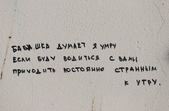 БАБУШКА ДУМАЕТ Я УМРУ
ЕСЛИ БУДУ ВОДИТЬСЯ С ВАМИ
ПРИХОДИТЬ ПОСТОЯННО СТРАННЫМ
К УТРУ.